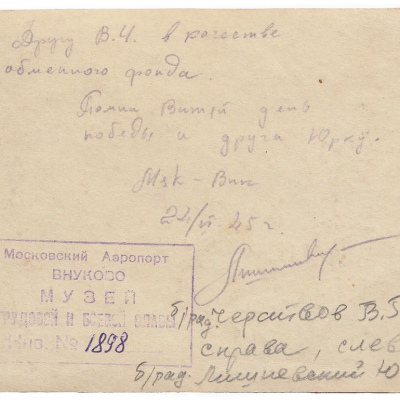 Другу В.Ч. в качестве
обменного фонда.
Помни Витей день
победы и друга Юрку.
Мяк - Вик
24/VI 45 г.
Московский Аэропорт
ВНУКОВО
МУЗЕЙ
ТРУДОВОЙ И БОЕВОЙ СЛАВЫ
Инв. № 1898
б/рад. Черствов В.
справа, слев
б/рад. Лишневский Ю